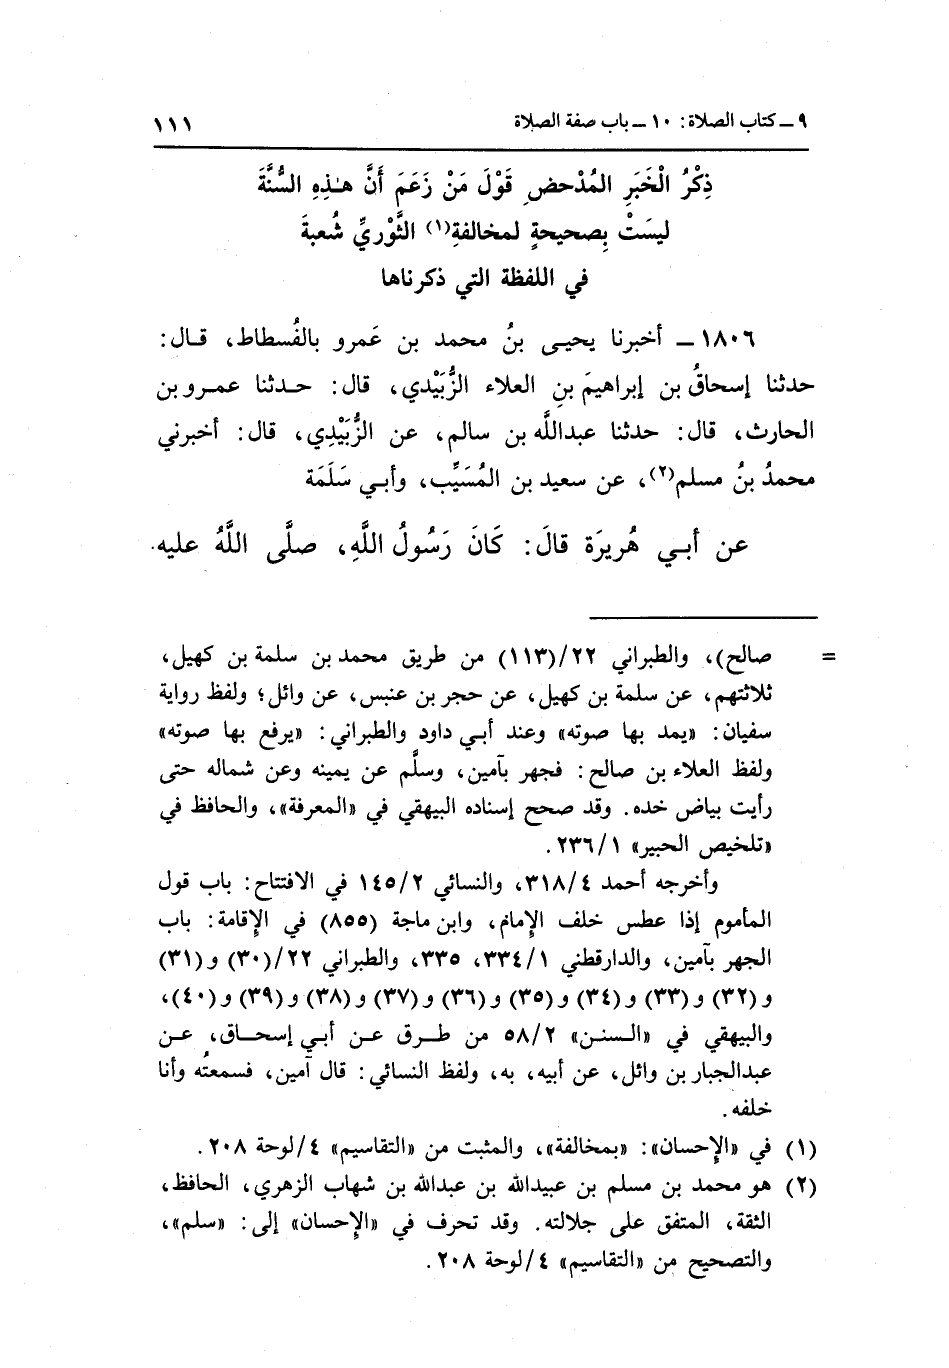 ٩ ــ كتاب الصلاة: ١٠ ــ باب صفة الصلاة ١١١
ذِكْرُ الْخَبَرِ المُدْحضِ قَوْلَ مَنْ زَعَمَ أَنَّ هٰذِهِ السُّنَّةَ
ليسَتْ بِصحيحةٍ لمخالفةِ(١) الثَّوْرِيِّ شُعبةَ
في اللفظة التي ذكرناها
١٨٠٦ ــ أخبرنا يحيـى بنُ محمد بن عَمرو بالفُسطاط، قـال:
حدثنا إسحاقُ بن إبراهيمَ بنِ العلاء الزُّبَيْدي، قال: حـدثنا عمـرو بن
الحارث، قال: حدثنا عبدالله بن سالم، عن الزُّبَيْدِي، قال: أخبرني
محمدُ بنُ مسلم(٢)، عن سعيد بن المُسَيِّب، وأبـي سَلَمَة
عن أبـي هُريرَة قالَ: كَانَ رَسُولُ اللَّهِ، صلَّى اللَّهُ عليه
= صالح)، والطبراني ٢٢/(١١٣) من طريق محمد بن سلمة بن كهيل،
ثلاثتهم، عن سلمة بن كهيل، عن حجر بن عنبس، عن وائل؛ ولفظ رواية
سفيان: «يمد بها صوته» وعند أبـي داود والطبراني: «يرفع بها صوته»
ولفظ العلاء بن صالح: فجهر بآمين، وسلَّم عن يمينه وعن شماله حتى
رأيت بياض خده. وقد صحح إسناده البيهقي في «المعرفة»، والحافظ في
«تلخيص الحبير» ٢٣٦/١.
وأخرجه أحمد ٣١٨/٤، والنسائي ١٤٥/٢ في الافتتاح: باب قول
المأموم إذا عطس خلف الإمام، وابن ماجة (٨٥٥) في الإقامة: باب
الجهر بآمين، والدارقطني ٣٣٤/١، ٣٣٥، والطبراني ٢٢/(٣٠) و(٣١)
و(٣٢) و(٣٣) و(٣٤) و(٣٥) و(٣٦) و(٣٧) و(٣٨) و(٣٩) و(٤٠)،
والبيهقي في «السنن» ٥٨/٢ من طـرق عـن أبـي إسحـاق، عـن
عبدالجبار بن وائل، عن أبيه، به، ولفظ النسائي: قال آمين، فسمعتُه وأنا
خلفه.
(١) في «الإحسان»: «بمخالفة»، والمثبت من «التقاسيم» ٤/لوحة ٢٠٨.
(٢) هو محمد بن مسلم بن عبيدالله بن عبدالله بن شهاب الزهري، الحافظ،
الثقة، المتفق على جلالته. وقد تحرف في «الإحسان» إلى: «سلم»،
والتصحيح من «التقاسيم» ٤/لوحة ٢٠٨.